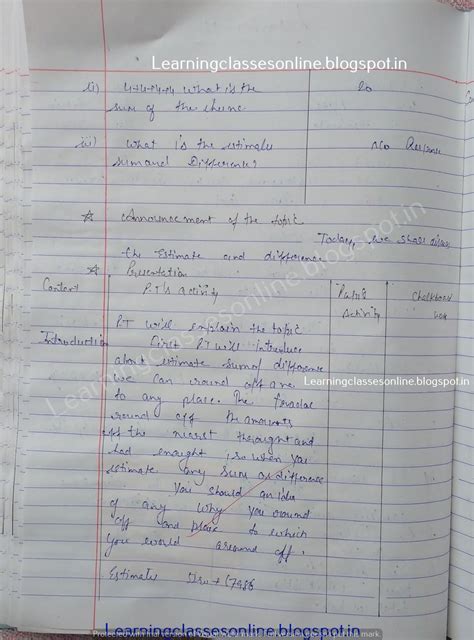 Learningclassesonline.blogspot.in
ii) What is the
sum of the
iii) What is the estimate No Response
sum and Difference?
☆ Announcement of the topic
Today, we shall discuss
the Estimate and difference
Learningclassesonline.blogspot.in
☆ Presentation
Content P.T's activity Pupil's Chalkboard
Activity work
P.T will explain the topic
Introduction First P.T will introduce
about estimate sum of difference
we can round off
Learningclassesonline.blogspot.in
to any place. The
round off the amounts
the nearest and
had so when you
estimate any sum or difference
You should an idea
of any why you round
off and place to which
you would around off.
Estimate
Learningclassesonline.blogspot.in